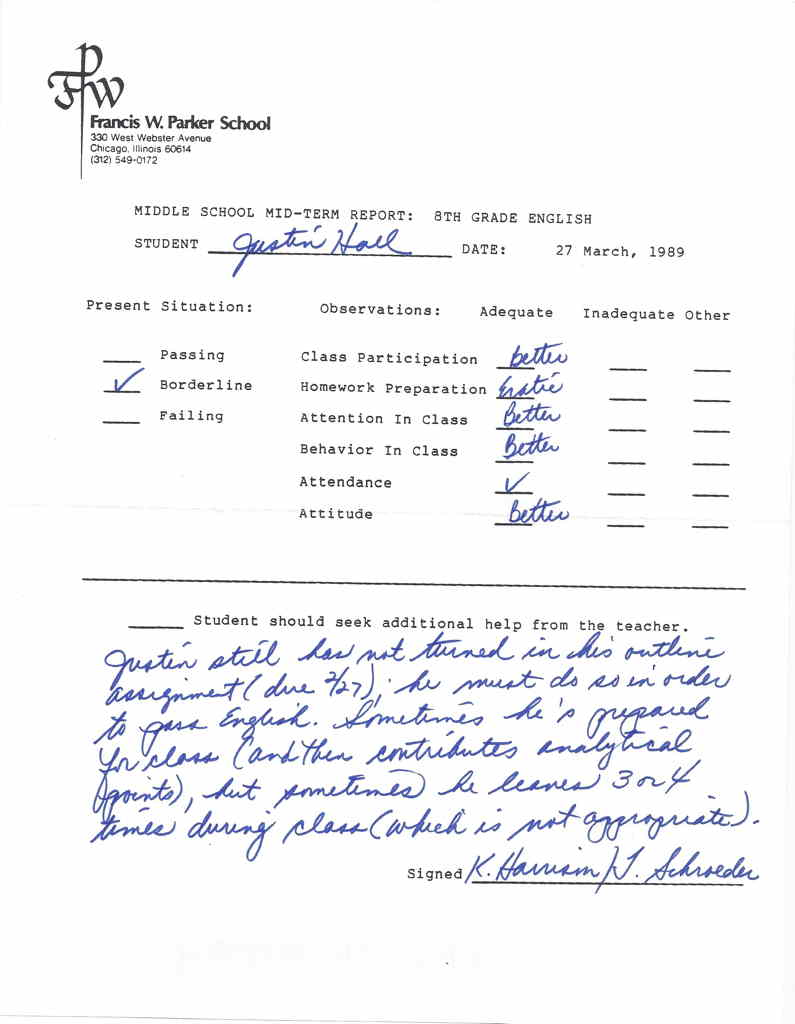 FPW
Francis W. Parker School
330 West Webster Avenue
Chicago, Illinois 60614
(312) 549-0172
MIDDLE SCHOOL MID-TERM REPORT: 8TH GRADE ENGLISH
STUDENT Justin Hall DATE: 27 March, 1989
Present Situation: Observations: Adequate Inadequate Other
Passing Class Participation Better
✓ Borderline Homework Preparation Eratic
Failing Attention In Class Better
Behavior In Class Better
Attendance ✓
Attitude Better
Student should seek additional help from the teacher.
Justin still has not turned in his outline
assignment (due 2/27); he must do so in order
to pass English. Sometimes he's prepared
for class (and then contributes analytical
points), but sometimes he leaves 3 or 4
times during class (which is not appropriate).
Signed K. Harrison/J. Schroeder